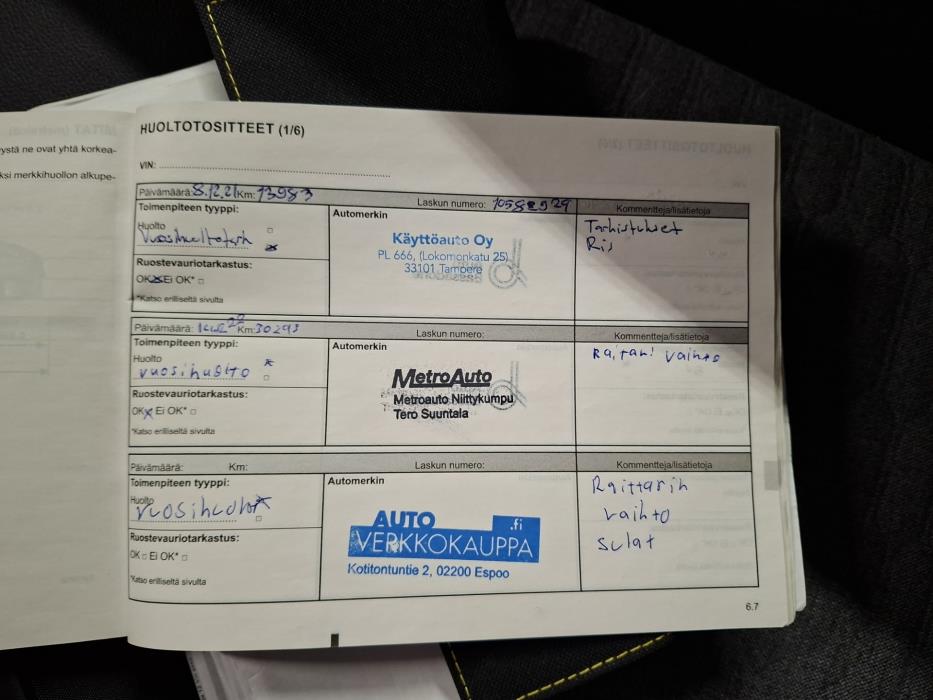 ystä ne ovat yhtä korkea-
ksi merkkihuollon alkupe-
HUOLTOTOSITTEET (1/6)
VIN:
Päivämäärä: 8.12.21 Km: 13983
Laskun numero: 10582929
Kommentteja/lisätietoja
Toimenpiteen tyyppi:
Huolto
Ruostevauriotarkastus:
OK Ei OK*
*Katso erilliseltä sivulta
Automerkin
Käyttöauto Oy
PL 666, (Lokomonkatu 25)
33101 Tampere
Päivämäärä: Km: 30293
Laskun numero:
Kommentteja/lisätietoja
Toimenpiteen tyyppi:
Huolto
vuosihuolto
Ruostevauriotarkastus:
OK Ei OK*
*Katso erilliseltä sivulta
Automerkin
MetroAuto
Metroauto Niittykumpu
Tero Suuntala
vaihto
Päivämäärä: Km:
Laskun numero:
Kommentteja/lisätietoja
Toimenpiteen tyyppi:
Huolto
Ruostevauriotarkastus:
OK Ei OK*
*Katso erilliseltä sivulta
Automerkin
AUTO .fi
VERKKOKAUPPA
Kotitontuntie 2, 02200 Espoo
Raittarin
vaihto
sulat
6.7